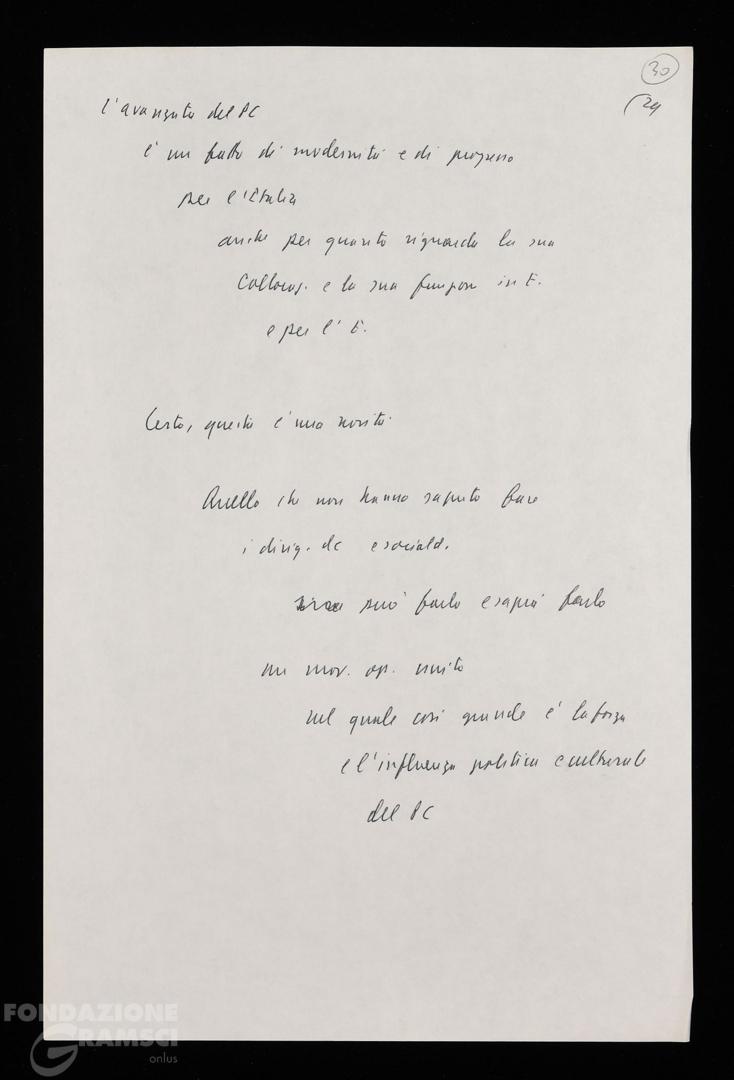 30
24
l'avanzata del PC
è un fatto di modernità e di progresso
per l'Italia
anche per quanto riguarda la sua
Collocaz. e la sua funzione in E.
e per l'E.
Certo, questa è una novità
Quello che non hanno saputo fare
i dirig. dc e sociald.
può farlo e saprà farlo
un mov. op. unito
nel quale così grande è la forza
e l'influenza politica e culturale
del PC
FONDAZIONE
GRAMSCI
onlus